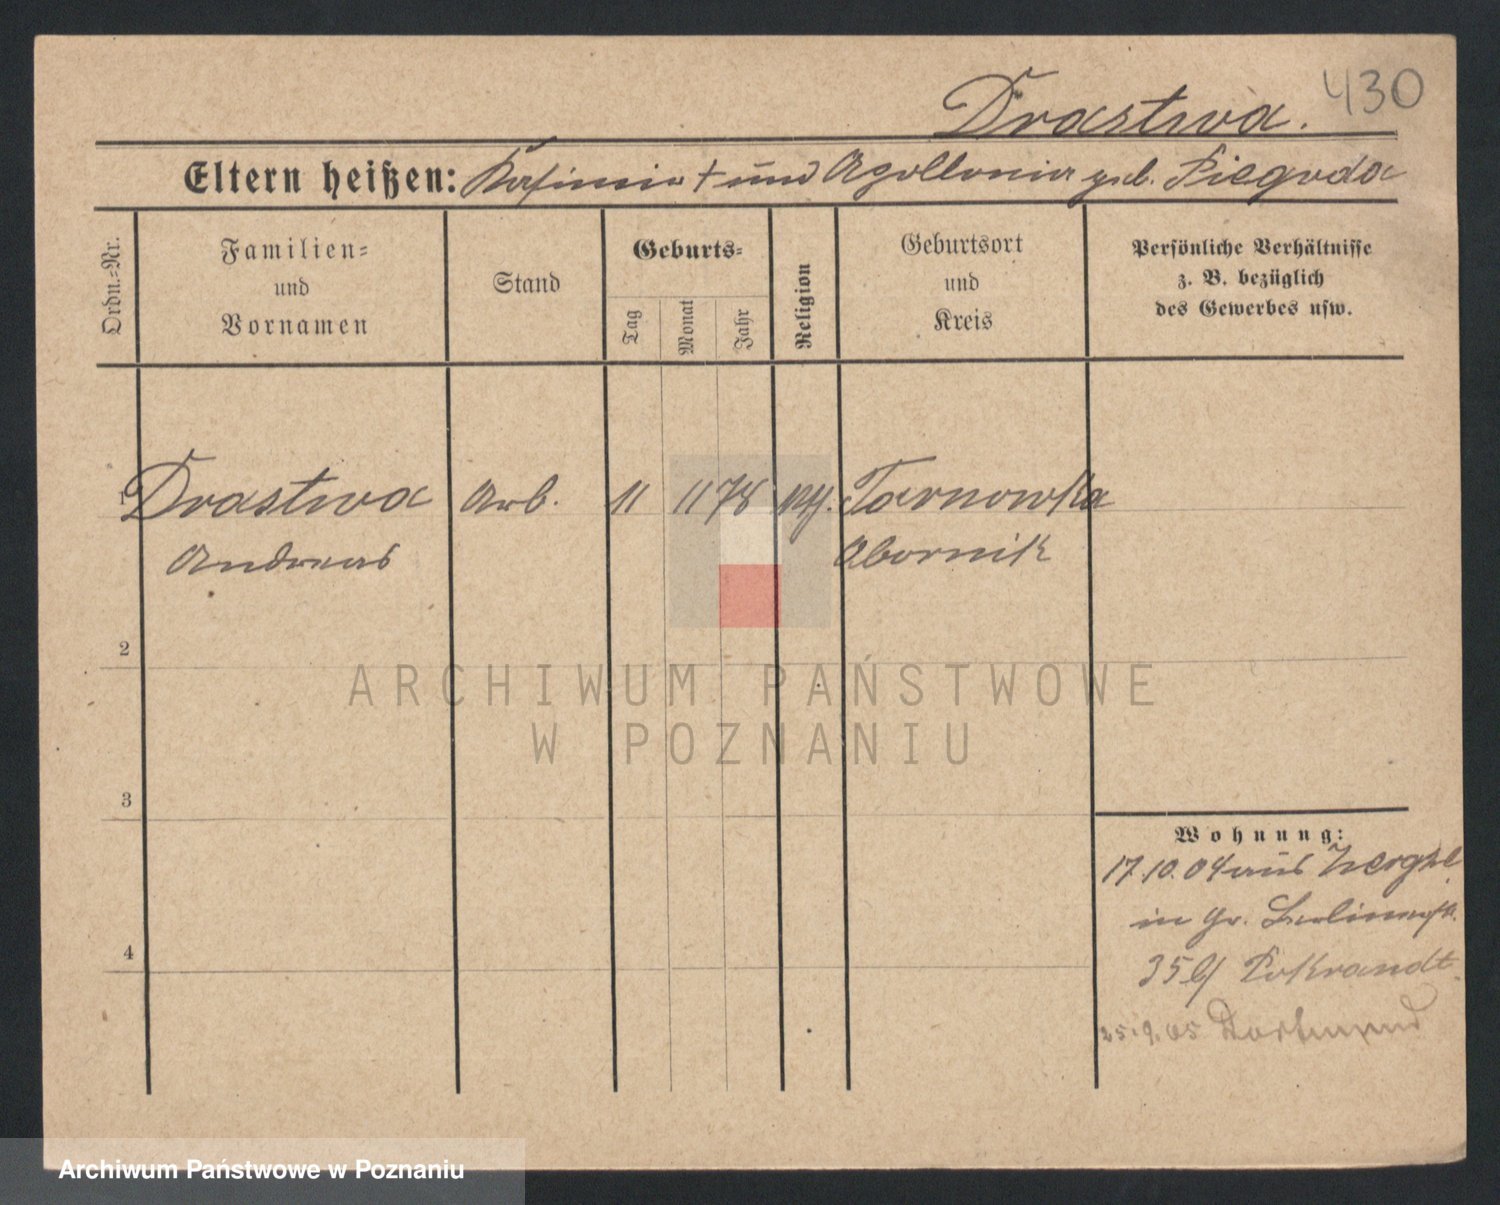 430
Drastwa.
Eltern heißen: Kasimir † und Apollonia geb. Piegoda
Ordn.-Nr.
Familien-
und
Vornamen
Stand
Geburts-
Tag
Monat
Jahr
Religion
Geburtsort
und
Kreis
Persönliche Verhältnisse
z. B. bezüglich
des Gewerbes usw.
1 Drastwa Arb. 11 11 78 Tarnowka
Andreas Obornik
2
3
4
Wohnung:
17.10.04 aus
in Gr. Berlinerstr.
35 b/ Pokrandt.
25.9.05 Dortmund
ARCHIWUM PAŃSTWOWE
W POZNANIU
Archiwum Państwowe w Poznaniu